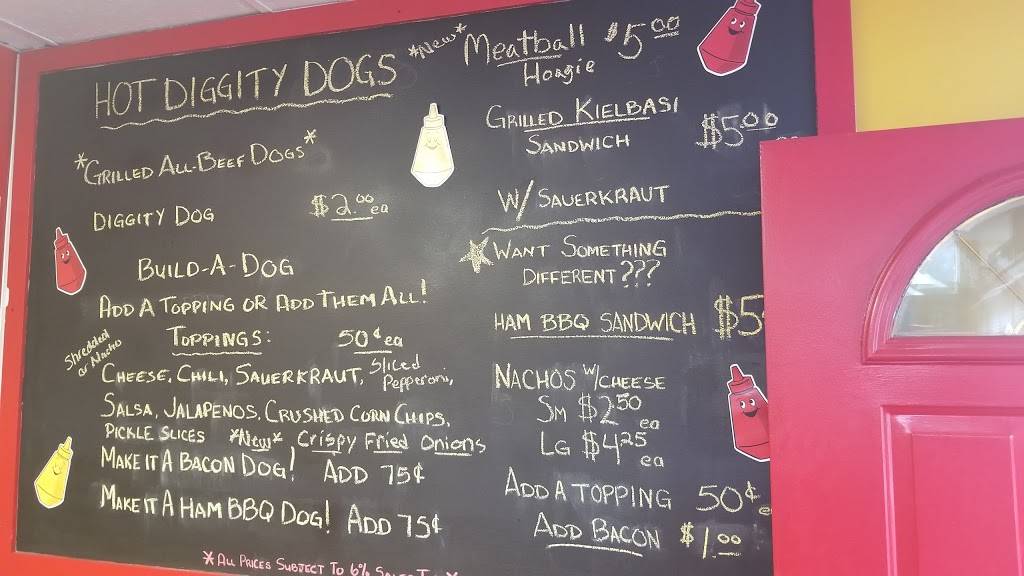 HOT DIGGITY DOGS
*GRILLED ALL-BEEF DOGS*
DIGGITY DOG $2.00 ea
BUILD-A-DOG
ADD A TOPPING OR ADD THEM ALL!
TOPPINGS: 50¢ ea
Shredded
or Nacho
CHEESE, CHILI, SAUERKRAUT, Sliced
Pepperoni,
SALSA, JALAPENOS, CRUSHED CORN CHIPS,
PICKLE SLICES *New* Crispy Fried Onions
MAKE IT A BACON DOG! ADD 75¢
MAKE IT A HAM BBQ DOG! ADD 75¢
*ALL PRICES SUBJECT TO 6%
*New* Meatball $5.00
Hoagie
GRILLED KIELBASI $5.00
SANDWICH
W/SAUERKRAUT
WANT SOMETHING
DIFFERENT???
HAM BBQ SANDWICH $5
NACHOS W/CHEESE
SM $2.50 ea
LG $4.25 ea
ADD A TOPPING 50¢
ADD BACON $1.00